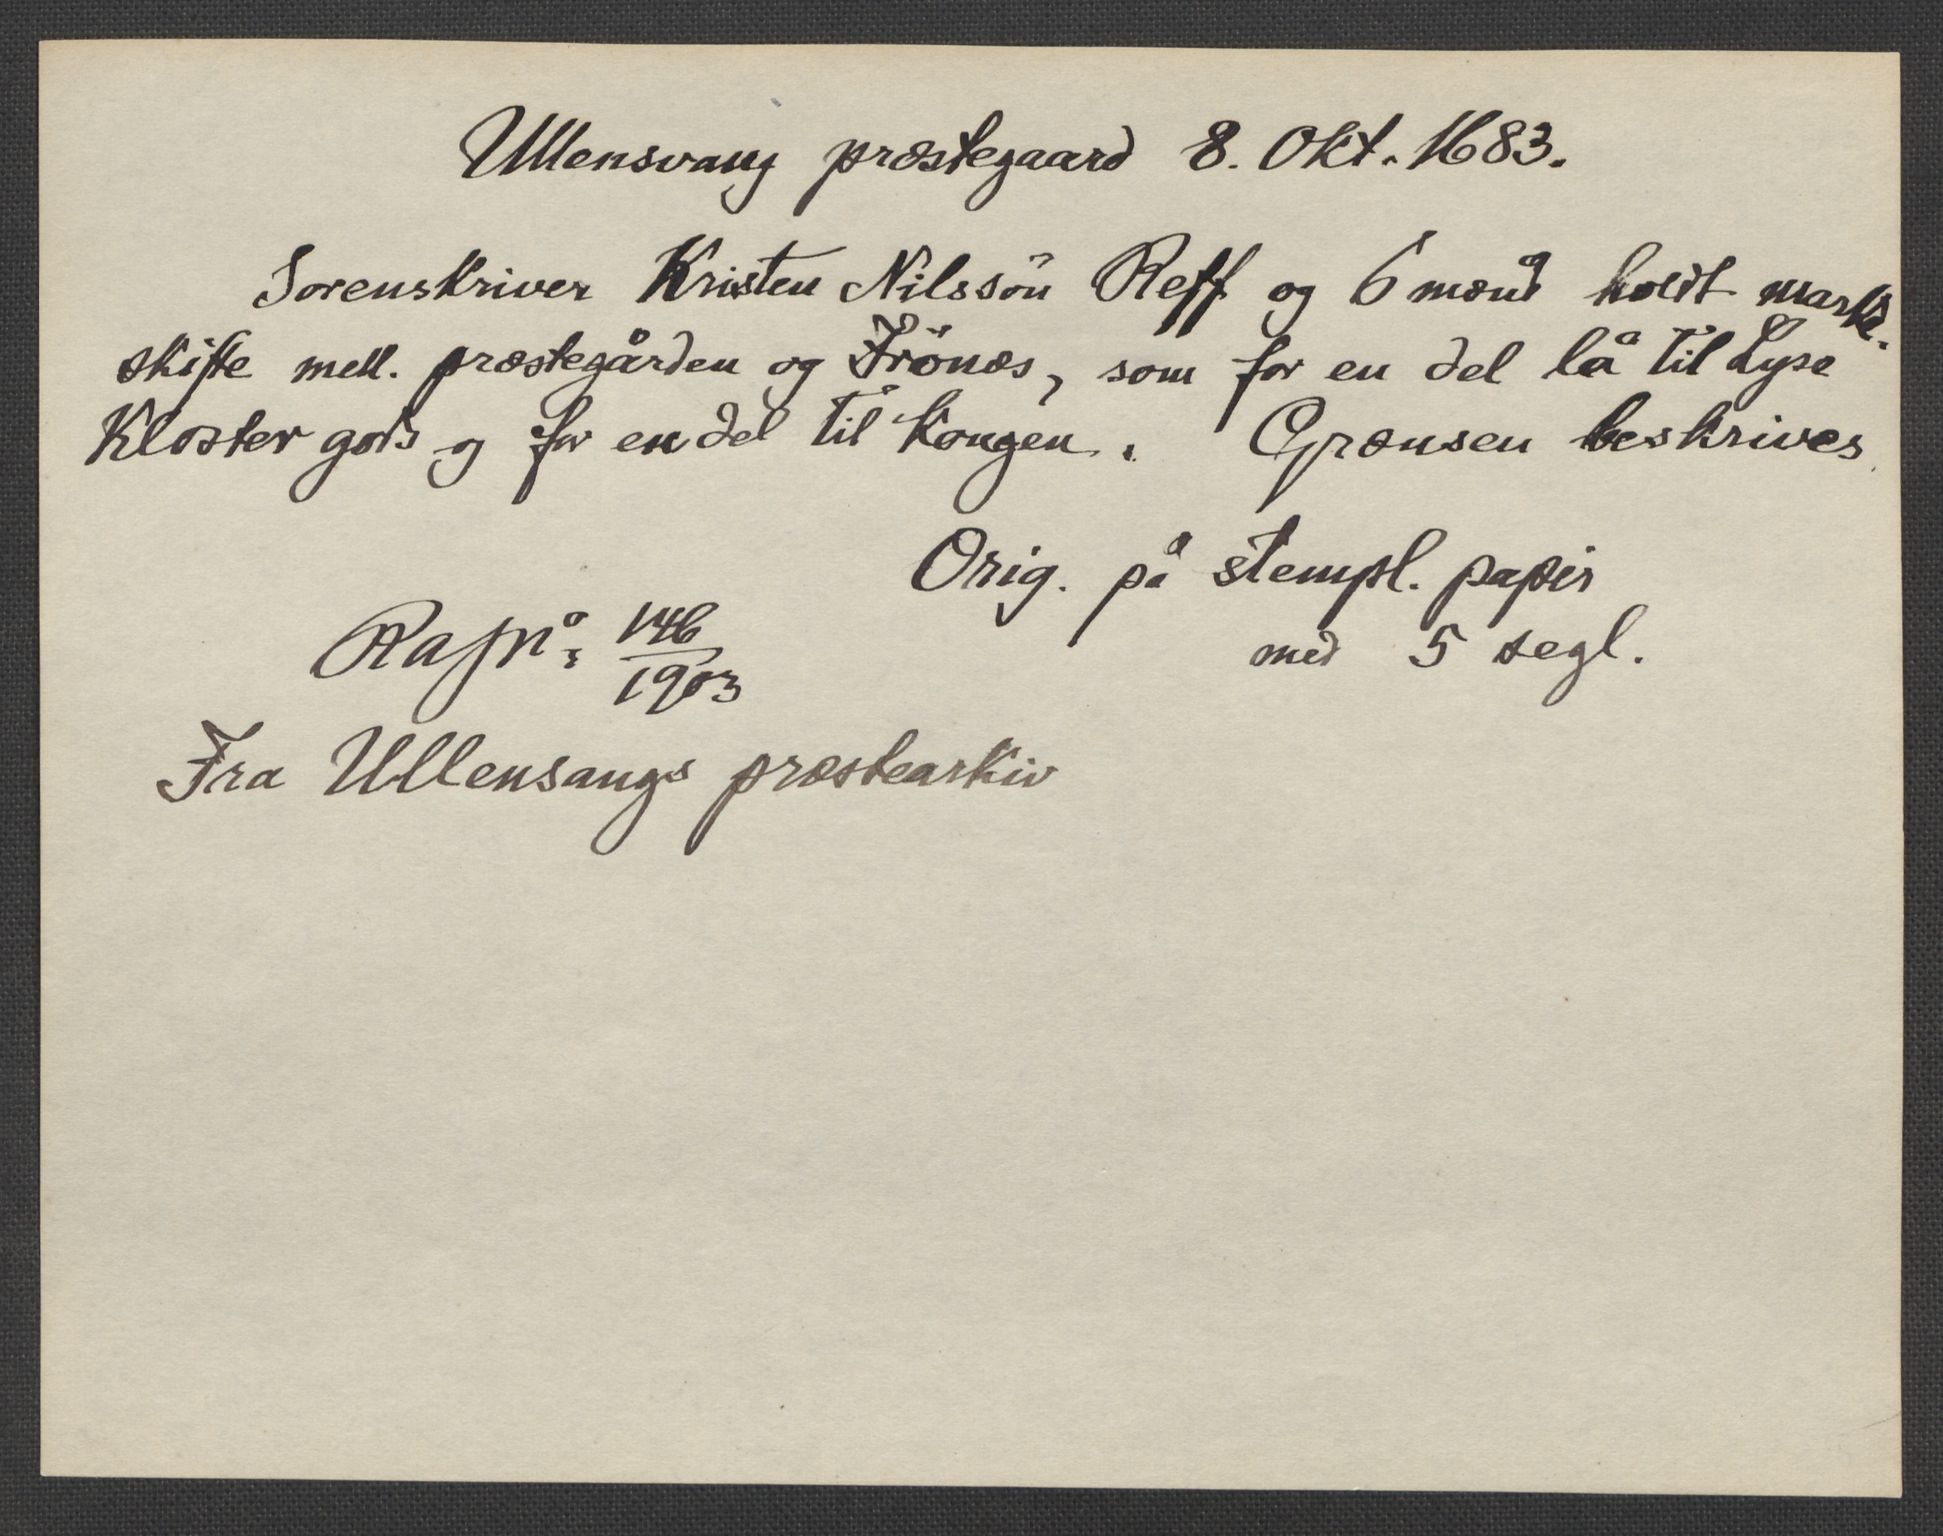 Ullensvang præstegaard 8. Okt. 1683.
Sorenskriver Kristen Nilssön Reff og 6 mænd holdt marke-
skifte mell. præstegården og Frönæs, som for en del lå til Lyse
Kloster gods og for en del til Kongen. Grænsen beskrives
Orig. på stempl. papir
med 5 segl.
Ra fm: 146
1903
Fra Ullensangs præstearkiv